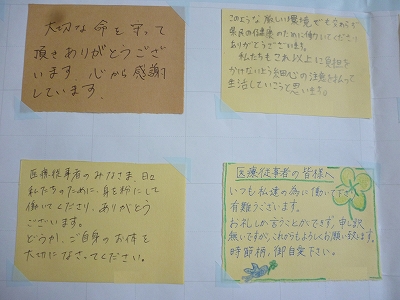 大切な命を守って
頂きありがとうござ
います。心から感謝
しています。
このような厳しい環境でも全わらず
県民の健康のために働いてくださり
ありがとうございます。
私たちもこれ以上に負担を
かけないよう細心の注意を払って
生活していこうと思います。
医療従事者のみなさま、日々
私たちのために、身を粉にして
働いてくださり、ありがとう
ございます。
どうか、ご自身のお体を
大切になさってください。
医療従事者の皆様へ
いつも私達の為に働いて下さり
有難うございます。
お礼しか言うことができず、申し訳
無いですが、これからもよろしくお願い致します。
時節柄、御自愛下さい。